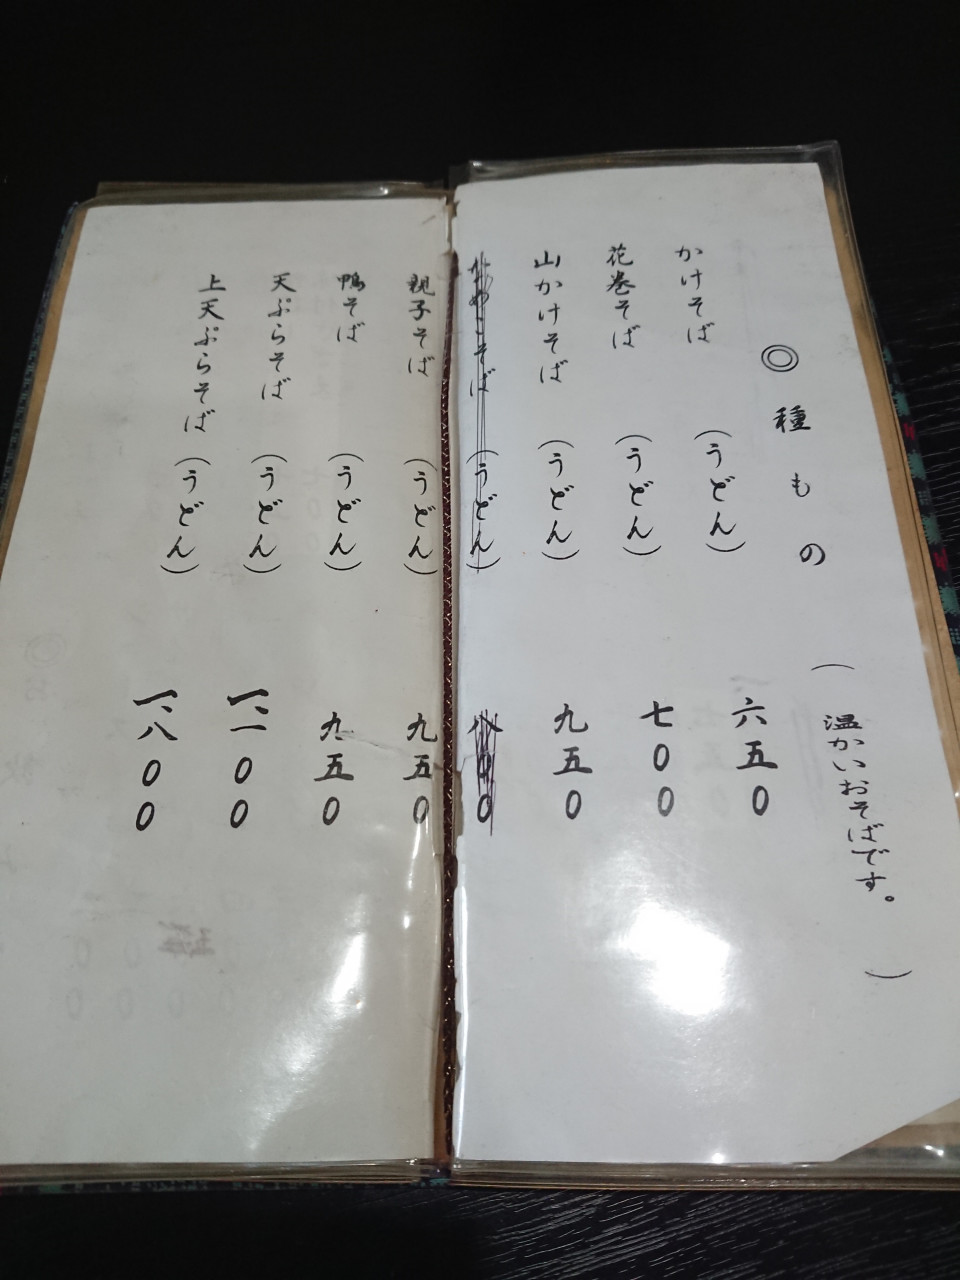 ◎種もの（温かいおそばです。）
かけそば（うどん）六五０
花巻そば（うどん）七００
山かけそば（うどん）九五０
なめこそば（うどん）八００
親子そば（うどん）九五０
鴨そば（うどん）九五０
天ぷらそば（うどん）一、一００
上天ぷらそば（うどん）一、八００